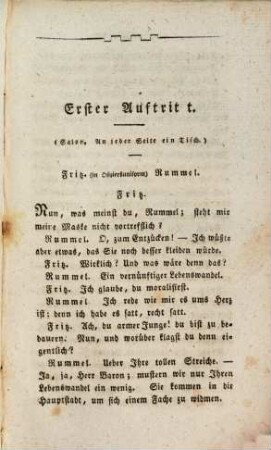 Erster Auftritt.
(Salon. An jeder Seite ein Tisch.)
Fritz. (in Offiziersuniform) Rummel.
Fritz.
Nun, was meinst du, Rummel; steht mir
meine Maske nicht vortrefflich?
Rummel. O, zum Entzücken! — Ich wüßte
aber etwas, das Sie noch besser kleiden würde.
Fritz. Wirklich? Und was wäre denn das?
Rummel. Ein vernünftiger Lebenswandel.
Fritz. Ich glaube, du moralisirst.
Rummel. Ich rede wie mir es ums Herz
ist; denn ich habe es satt, recht satt.
Fritz. Ach, du armer Junge! du bist zu be-
dauern. Nun, und worüber klagst du denn ei-
gentlich?
Rummel. Ueber Ihre tollen Streiche. —
Ja, ja, Herr Baron; mustern wir nur Ihren
Lebenswandel ein wenig. Sie kommen in die
Hauptstadt, um sich einem Fache zu widmen.